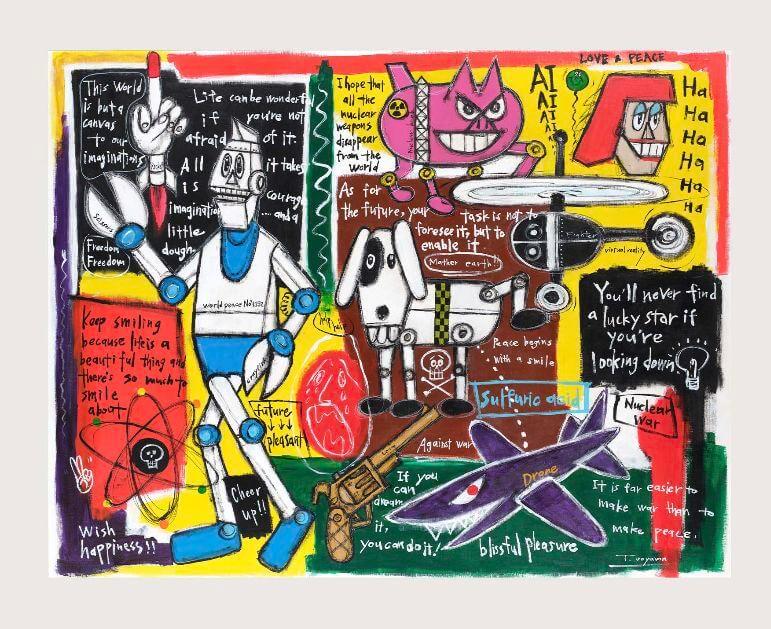 This World
is but a
canvas
to our
imaginations
Life can be wonderful
if you're not
afraid of it.
All it takes
is courage
imagination ... and a
little
dough.
science
Freedom
Freedom
world peace No
Keep smiling
because life is a
beautiful thing and
there's so much to
smile
about
future
pleasant
Cheer
up!!
Wish
happiness!!
I hope that
all the
nuclear
weapons
disappear
from the
World
LOVE & PEACE
AI
AI
AI
AI
Ha
Ha
Ha
Ha
Ha
Ha
As for
the future, your task is not to
foresee it, but to
enable it.
Mother earth!
Fighter
virtual reality
Peace begins
with a smile
You'll never find
a lucky star if
you're
looking down
Sulfuric acid
Nuclear
War
Against war
Drone
If you
can
dream
it,
you can do it!
blissful pleasure
It is far easier to
make war than to
make peace.